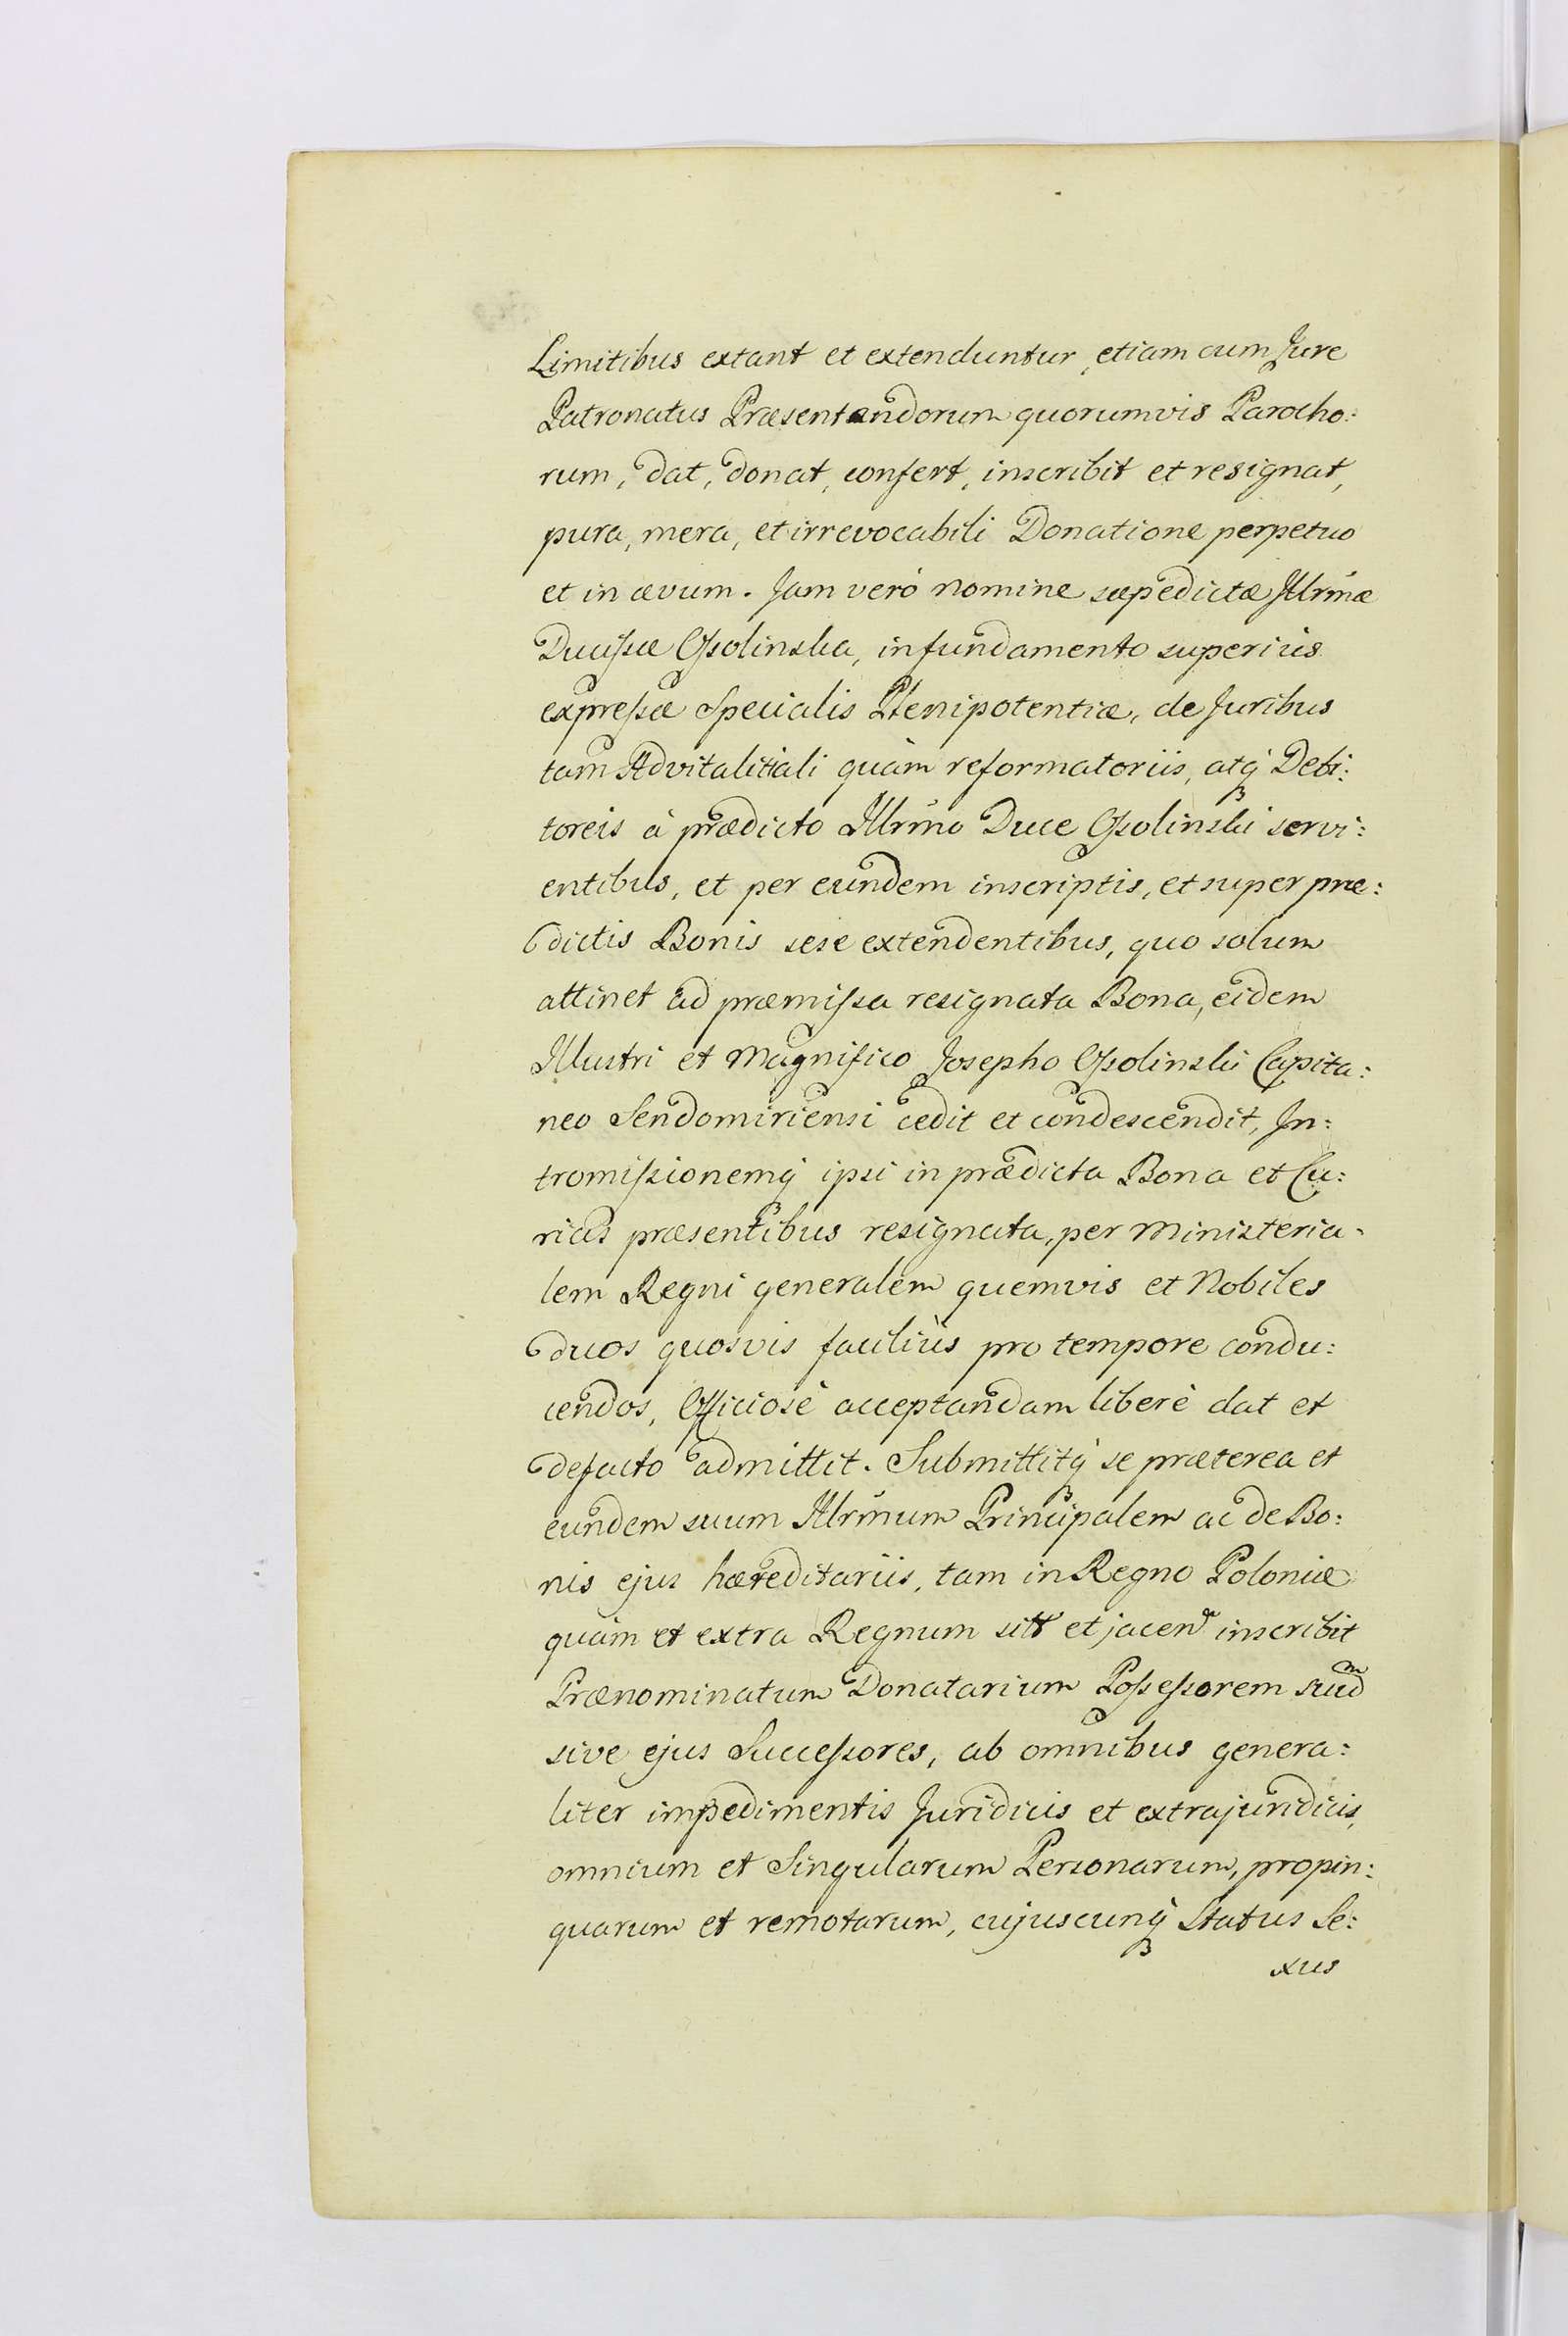 Limitibus extant et extenduntur, etiam cum Jure
Patronatus Præsentandorum quorumvis Parocho:
rum, dat, donat, confert, inscribit et resignat,
pura, mera, et irrevocabili Donatione perpetuo
et in ævum. Jam verò nomine sæpedictæ Illrm̃æ
Ducissæ Ossolinska, in fundamento superiùs
expressæ Specialis Plenipotentiæ, de Juribus
tam Advitalitiali quàm reformatoriis, atq̃ Debi:
toreis à prædicto Illrm̃o Duce Ossolinski servi:
entibus, et per eundem inscriptis, et super præ:
dictis Bonis sese extendentibus, quo solum
attinet ad præmissa resignata Bona, eidem
Illustri et Magnifico Josepho Ossolinski Capita:
neo Sendomiriensi cedit et condescendit, In:
tromissionemq̃ ipsi in prædicta Bona et Cu:
rias præsentibus resignata, per Ministeria-
lem Regni generalem quemvis et Nobiles
duos quosvis faciliùs pro tempore condu:
cendos, Officiosè acceptandam liberè dat et
defacto admittit. Submittitq̃ se præterea et
eundem suum Illrm̃um Principalem ac de Bo:
nis ejus hæreditariis, tam in Regno Poloniæ
quàm et extra Regnum sitt et jacen inscribit
Prænominatum Donatarium Possessorem suũ
sive ejus Successores, ab omnibus genera:
liter impedimentis Juridicis et extrajuridicis,
omnium et Singularum Personarum, propin:
quarum et remotarum, cujuscunq̃ Status Se:
xus